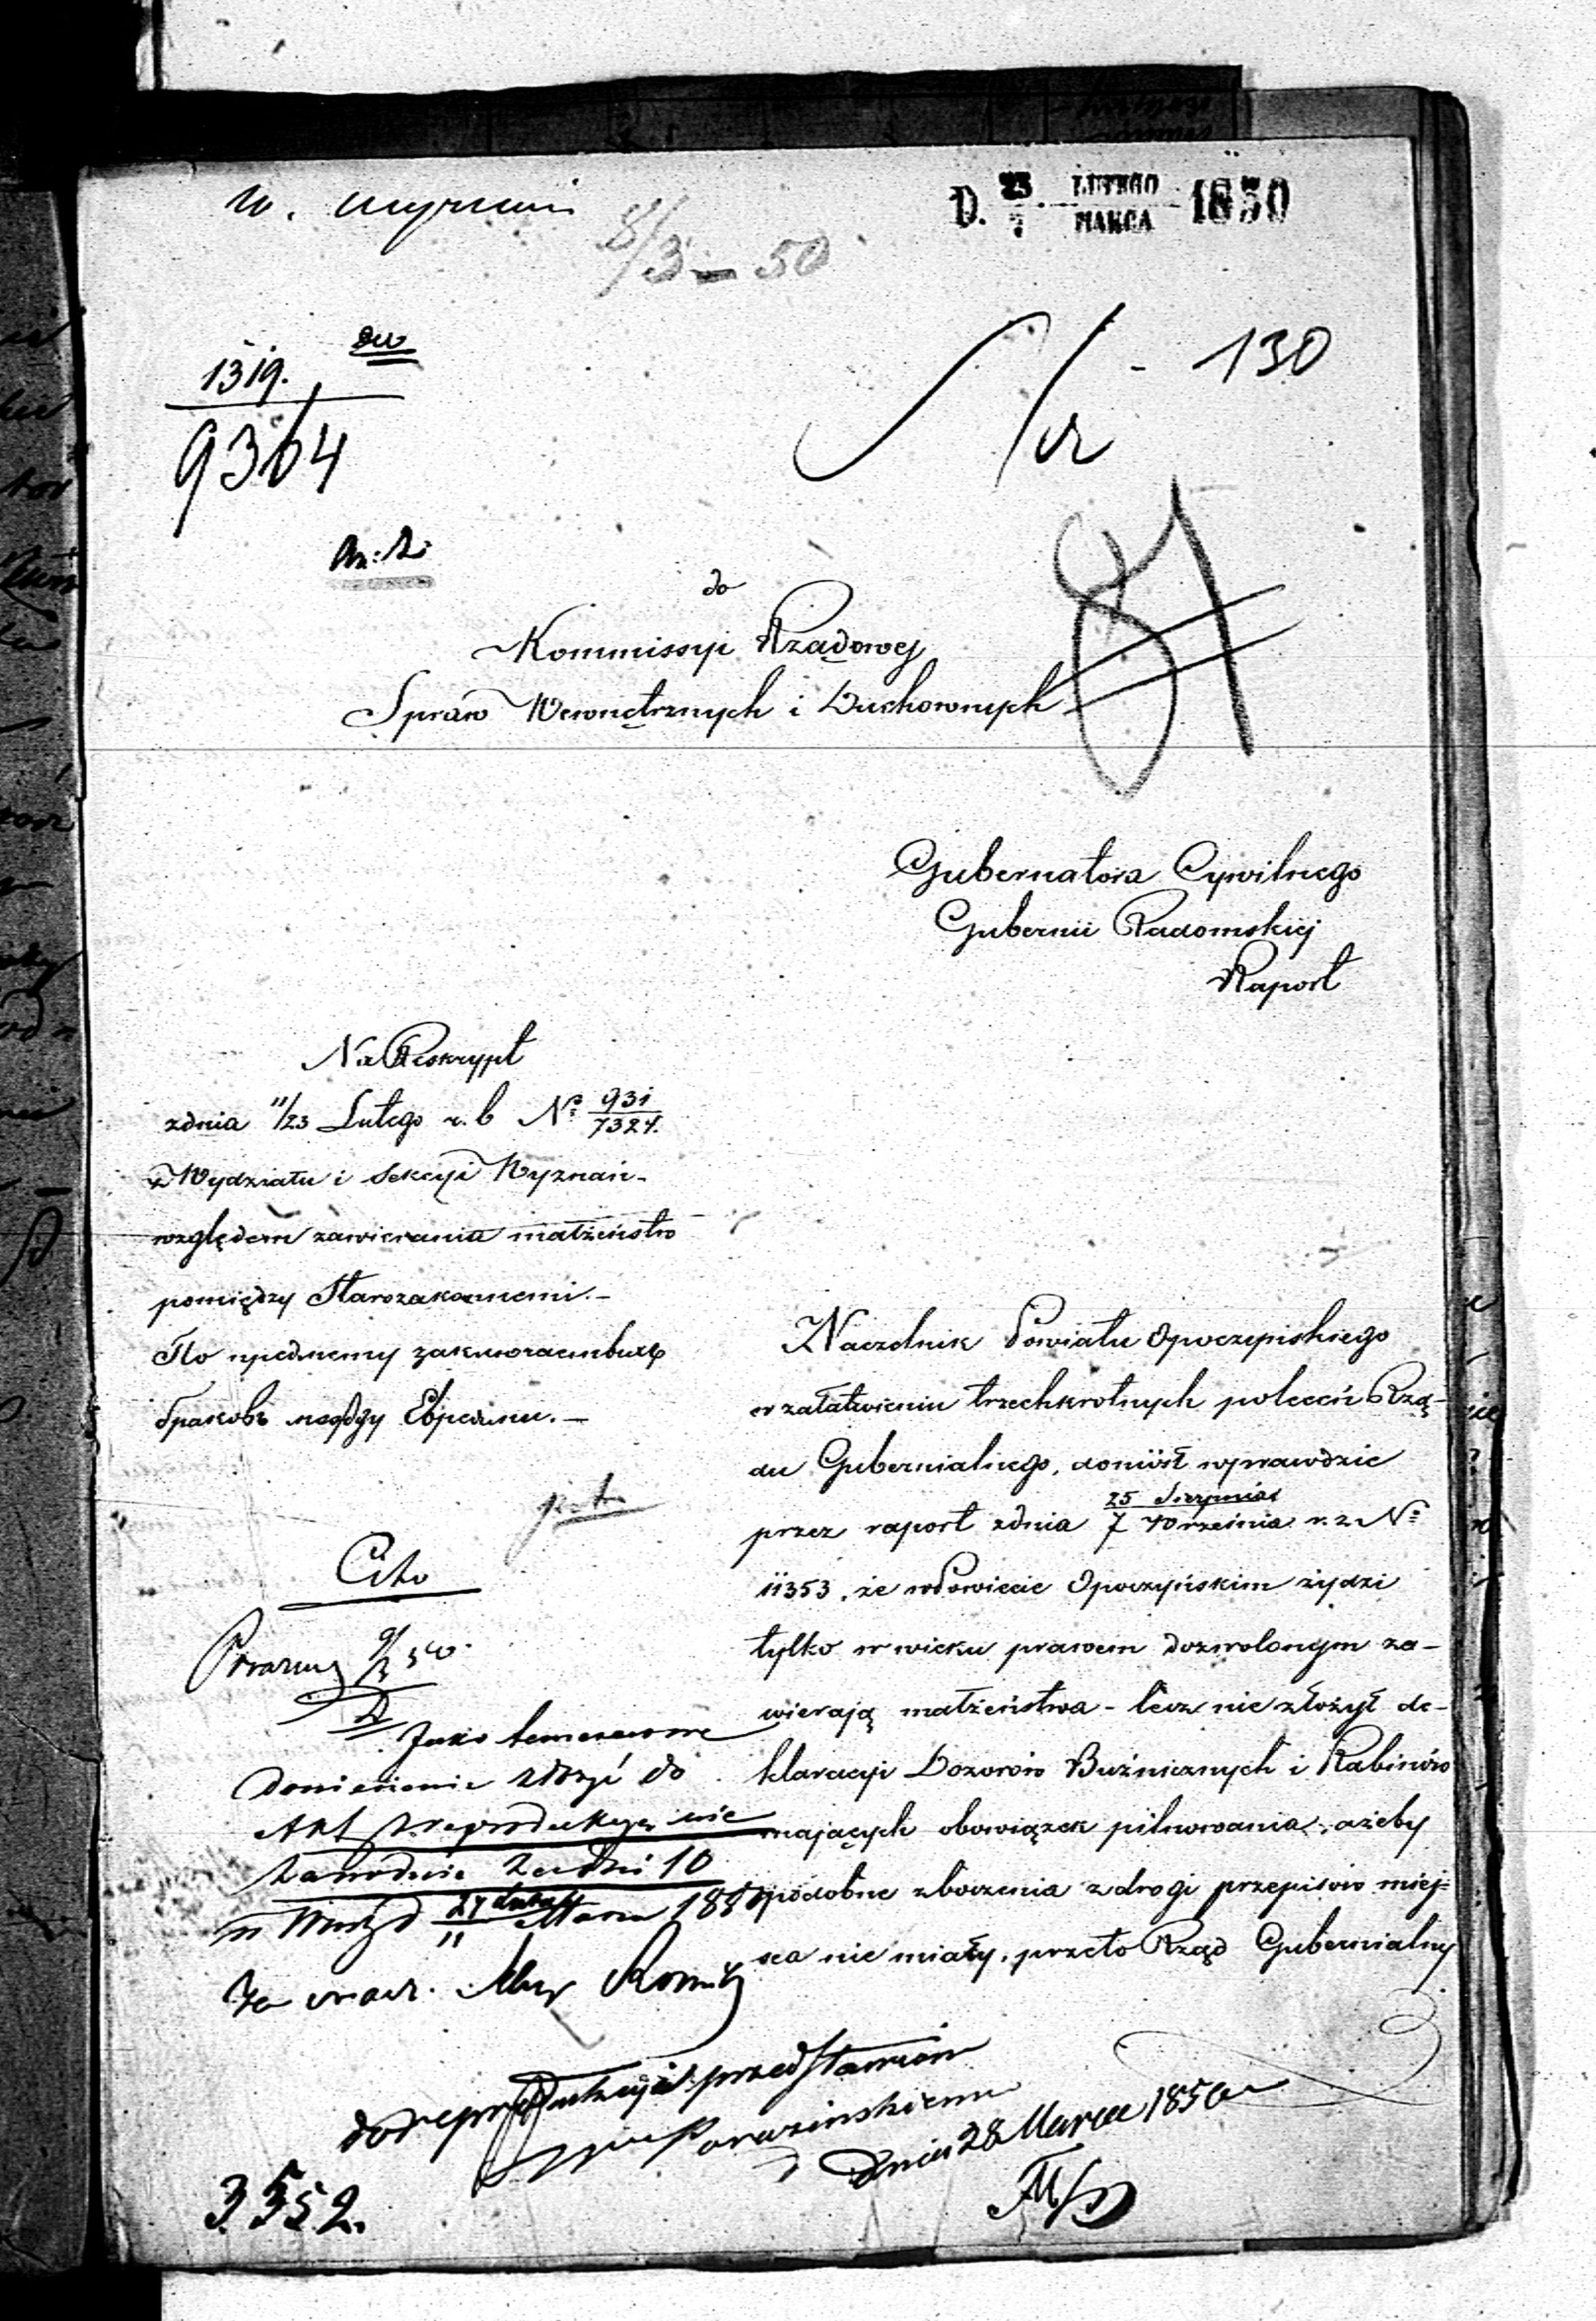 D. 23/7 LUTEGO/MARCA 1850
8/3 – 50
1319.
9304
130
87
do
Kommissyi Rządowej
Spraw Wewnętrznych i Duchownych
Gubernatora Cywilnego
Gubernii Radomskiej
Raport
Na Reskrypt
z dnia 11/23 Lutego r. b Nº 931/7324.
z Wydziału i Sekcyi Wyznań
względem zawierania małżeństw
pomiędzy Starozakonnemi. –
По предмету заключаемыхъ
браковъ между Евреями. –
Cito
Naczelnik Powiatu Opoczyńskiego
w załatwieniu trzechkrotnych poleceń Rzą-
du Gubernialnego, doniósł wprawdzie
przez raport z dnia 25 Sierpnia/7 Września r. z. Nº
11353. że w Powiecie Opoczyńskim żydzi
tylko w wieku prawem dozwolonym za-
wierają małżeństwa – lecz nie złożył de-
klaracyi Dozorów Bużnicznych i Rabinów
mających obowiązek pilnowania, ażeby
podobne zboczenia z drogi przepisów miej-
sca nie miały, przeto Rząd Gubernialny
Jako tymczasowe
doniesienie złożyć do
Akt z reprodukcyą nie
zawodnie za dni 10
do reprodukcyi przedstawione
dnia 28 Marca 1850
3552.